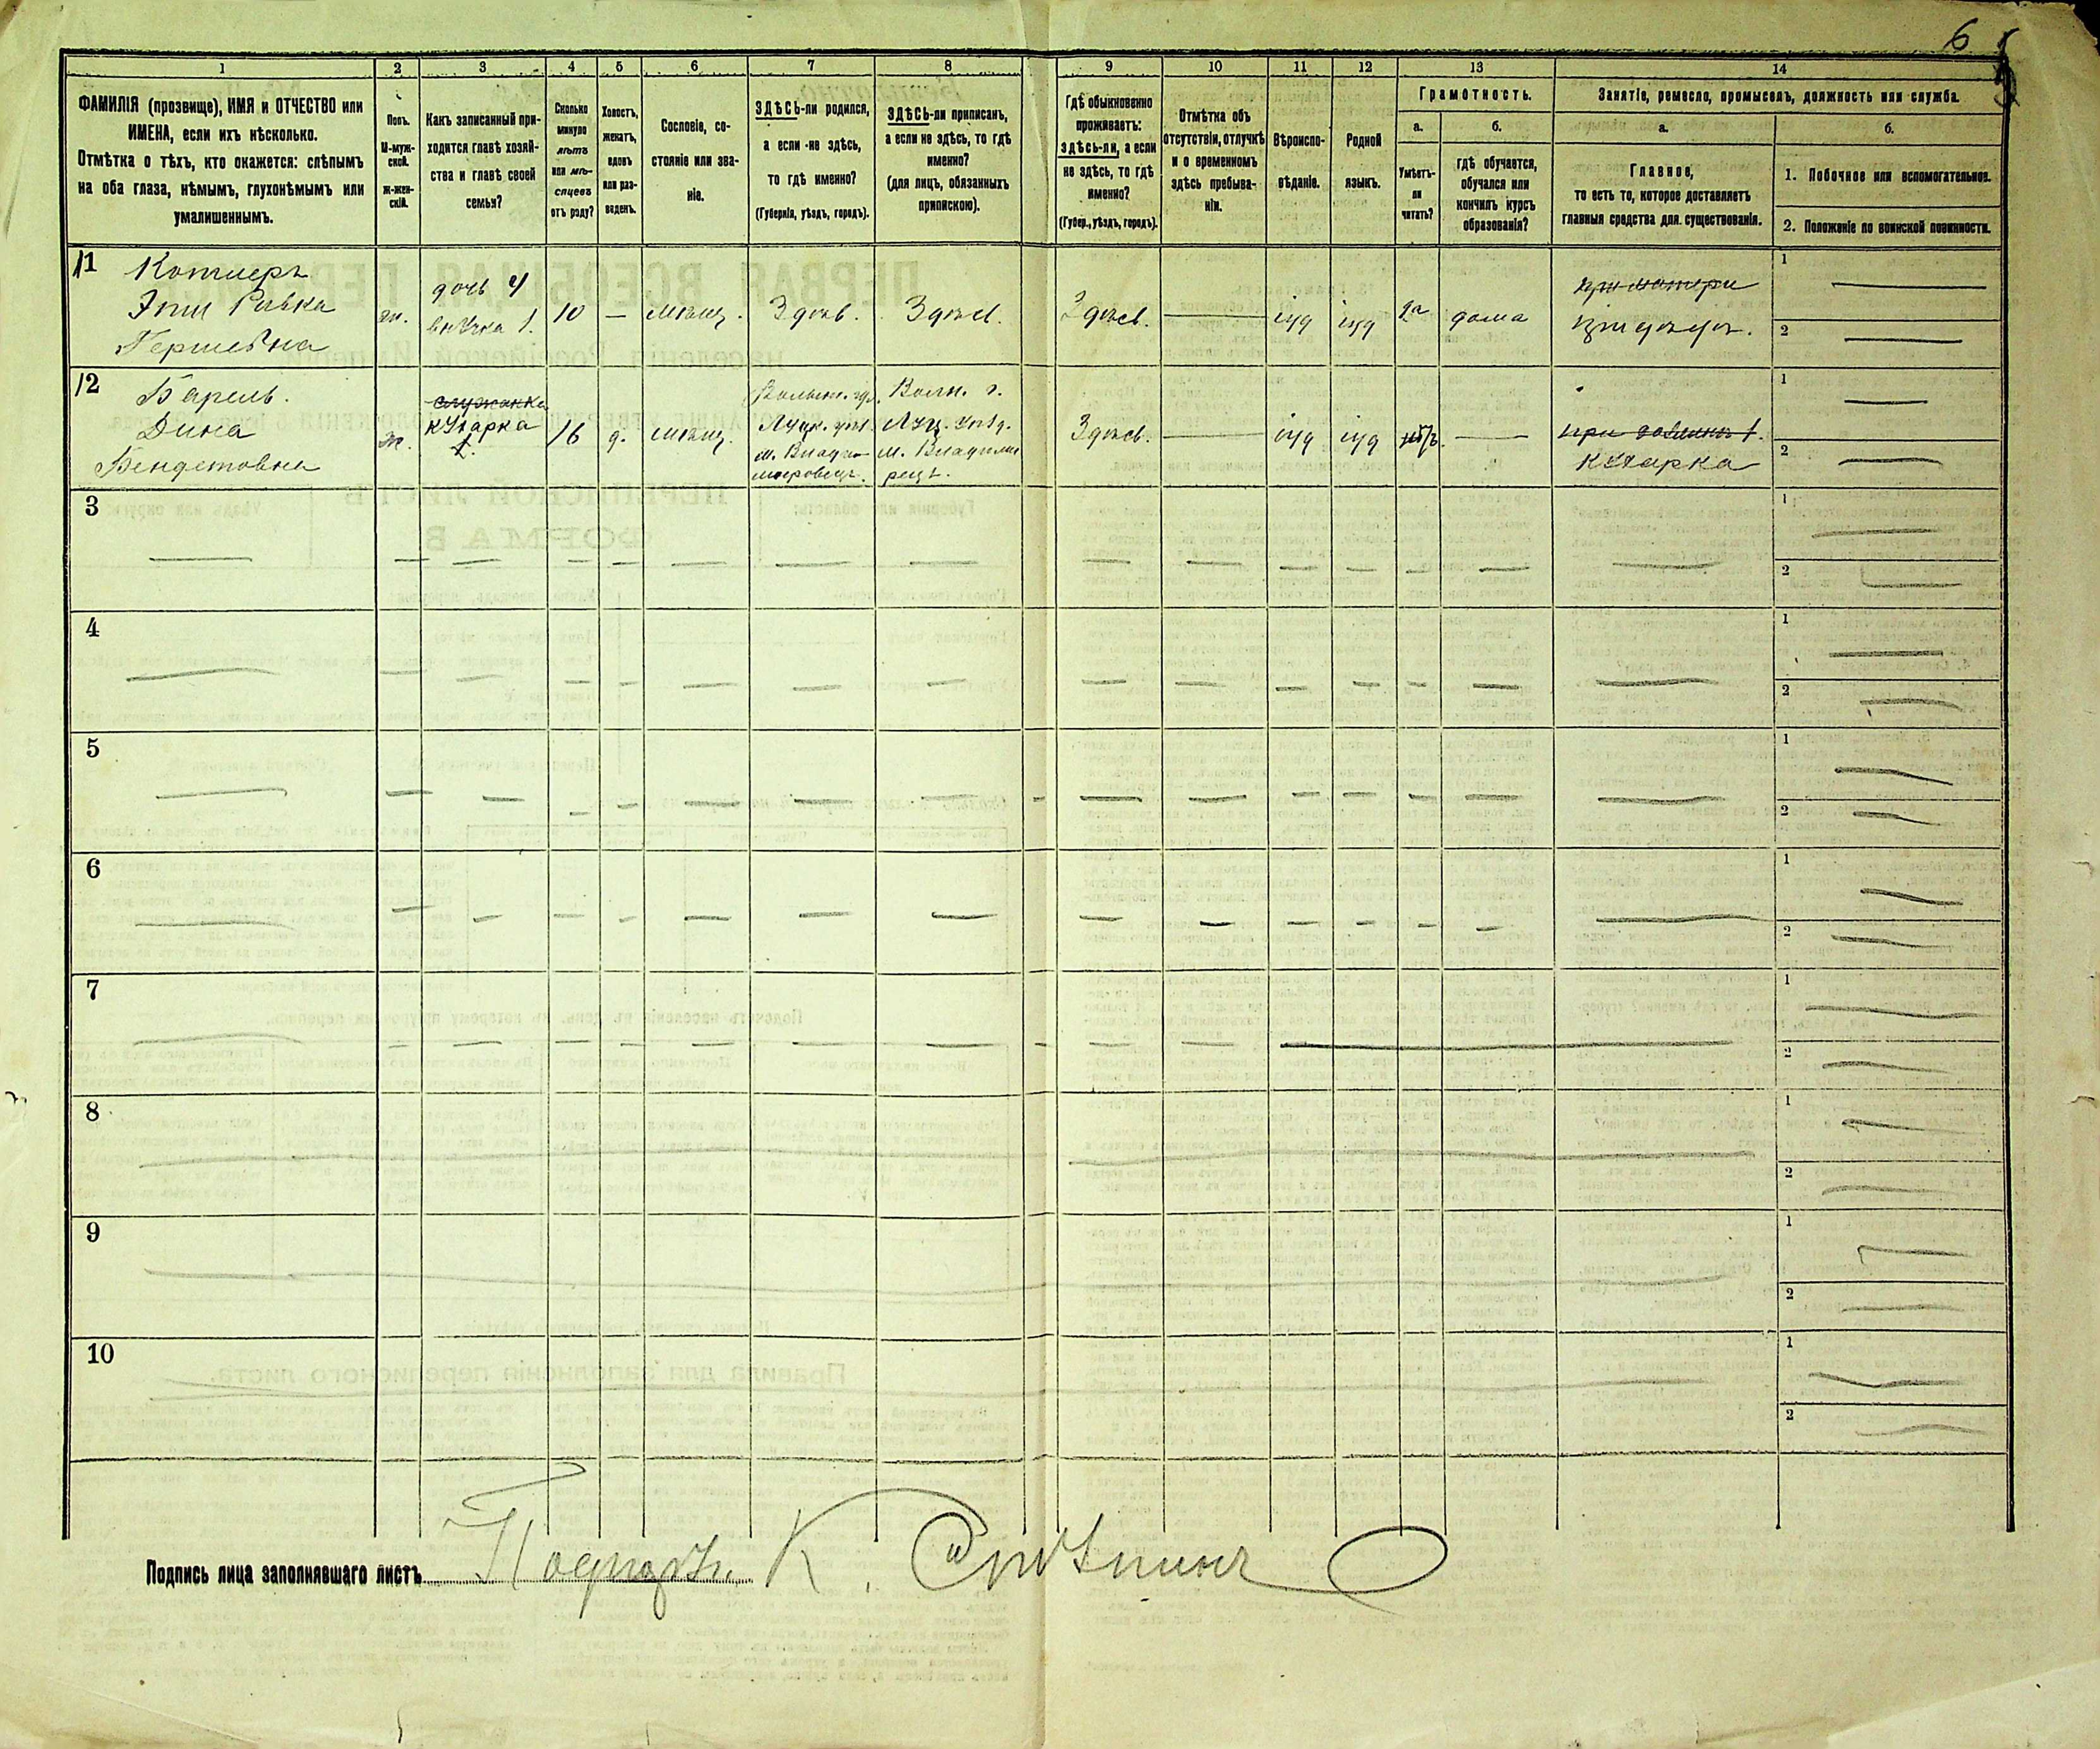 6
1 2 3 4 5 6 7 8 9 10 11 12 13 14
ФАМИЛІЯ (прозвище), ИМЯ и ОТЧЕСТВО или
ИМЕНА, если ихъ нѣсколько.
Отмѣтка о тѣхъ, кто окажется: слѣпымъ
на оба глаза, нѣмымъ, глухонѣмымъ или
умалишеннымъ.
Полъ.
М-муж-
ской.
ж-жен-
скій.
Какъ записанный при-
ходится главѣ хозяй-
ства и главѣ своей
семьи?
Сколько
минуло
лѣтъ
или мѣ-
сяцевъ
отъ роду?
Холостъ,
женатъ,
вдовъ
или раз-
веденъ.
Сословіе, со-
стояніе или зва-
ніе.
ЗДѢСЬ-ли родился,
а если не здѣсь,
то гдѣ именно?
(Губернія, уѣздъ, городъ).
ЗДѢСЬ-ли приписанъ,
а если не здѣсь, то гдѣ
именно?
(для лицъ, обязанныхъ
припискою).
Гдѣ обыкновенно
проживаетъ:
здѣсь-ли, а если
не здѣсь, то гдѣ
именно?
(Губер., уѣздъ, городъ).
Отмѣтка объ
отсутствіи, отлучкѣ
и о временномъ
здѣсь пребыва-
ніи.
Вѣроиспо-
вѣданіе.
Родной
языкъ.
Грамотность.
а.
Умѣетъ-
ли
читать?
б.
гдѣ обучается,
обучался или
кончилъ курсъ
образованія?
Занятіе, ремесло, промыселъ, должность или служба.
а.
Главное,
то есть то, которое доставляетъ
главныя средства для существованія.
б.
1. Побочное или вспомогательное.
2. Положеніе по воинской повинности.
11 Котлеръ
Эти Ривка
Гершевна
ж.
дочь 4
внучка 1.
10
—
мѣщ.
Здѣсь.
Здѣсь.
Здѣсь.
іуд
іуд
да
дома
при матери
при дѣдѣ.
1
2
12 Барель.
Дина
Бендетовна
ж.
служанка
кухарка
1.
16
д.
мѣщ.
Волын. гу.
Луцк. уѣз.
м. Влади-
мировецъ.
Волын. г.
Луц. уѣзд.
м. Владими
рецъ.
Здѣсь.
іуд
іуд
нѣтъ
кухарка
1
2
3
1
2
4
1
2
5
1
2
6
1
2
7
1
2
8
1
2
9
1
2
10
1
2
Подпись лица заполнявшаго листъ